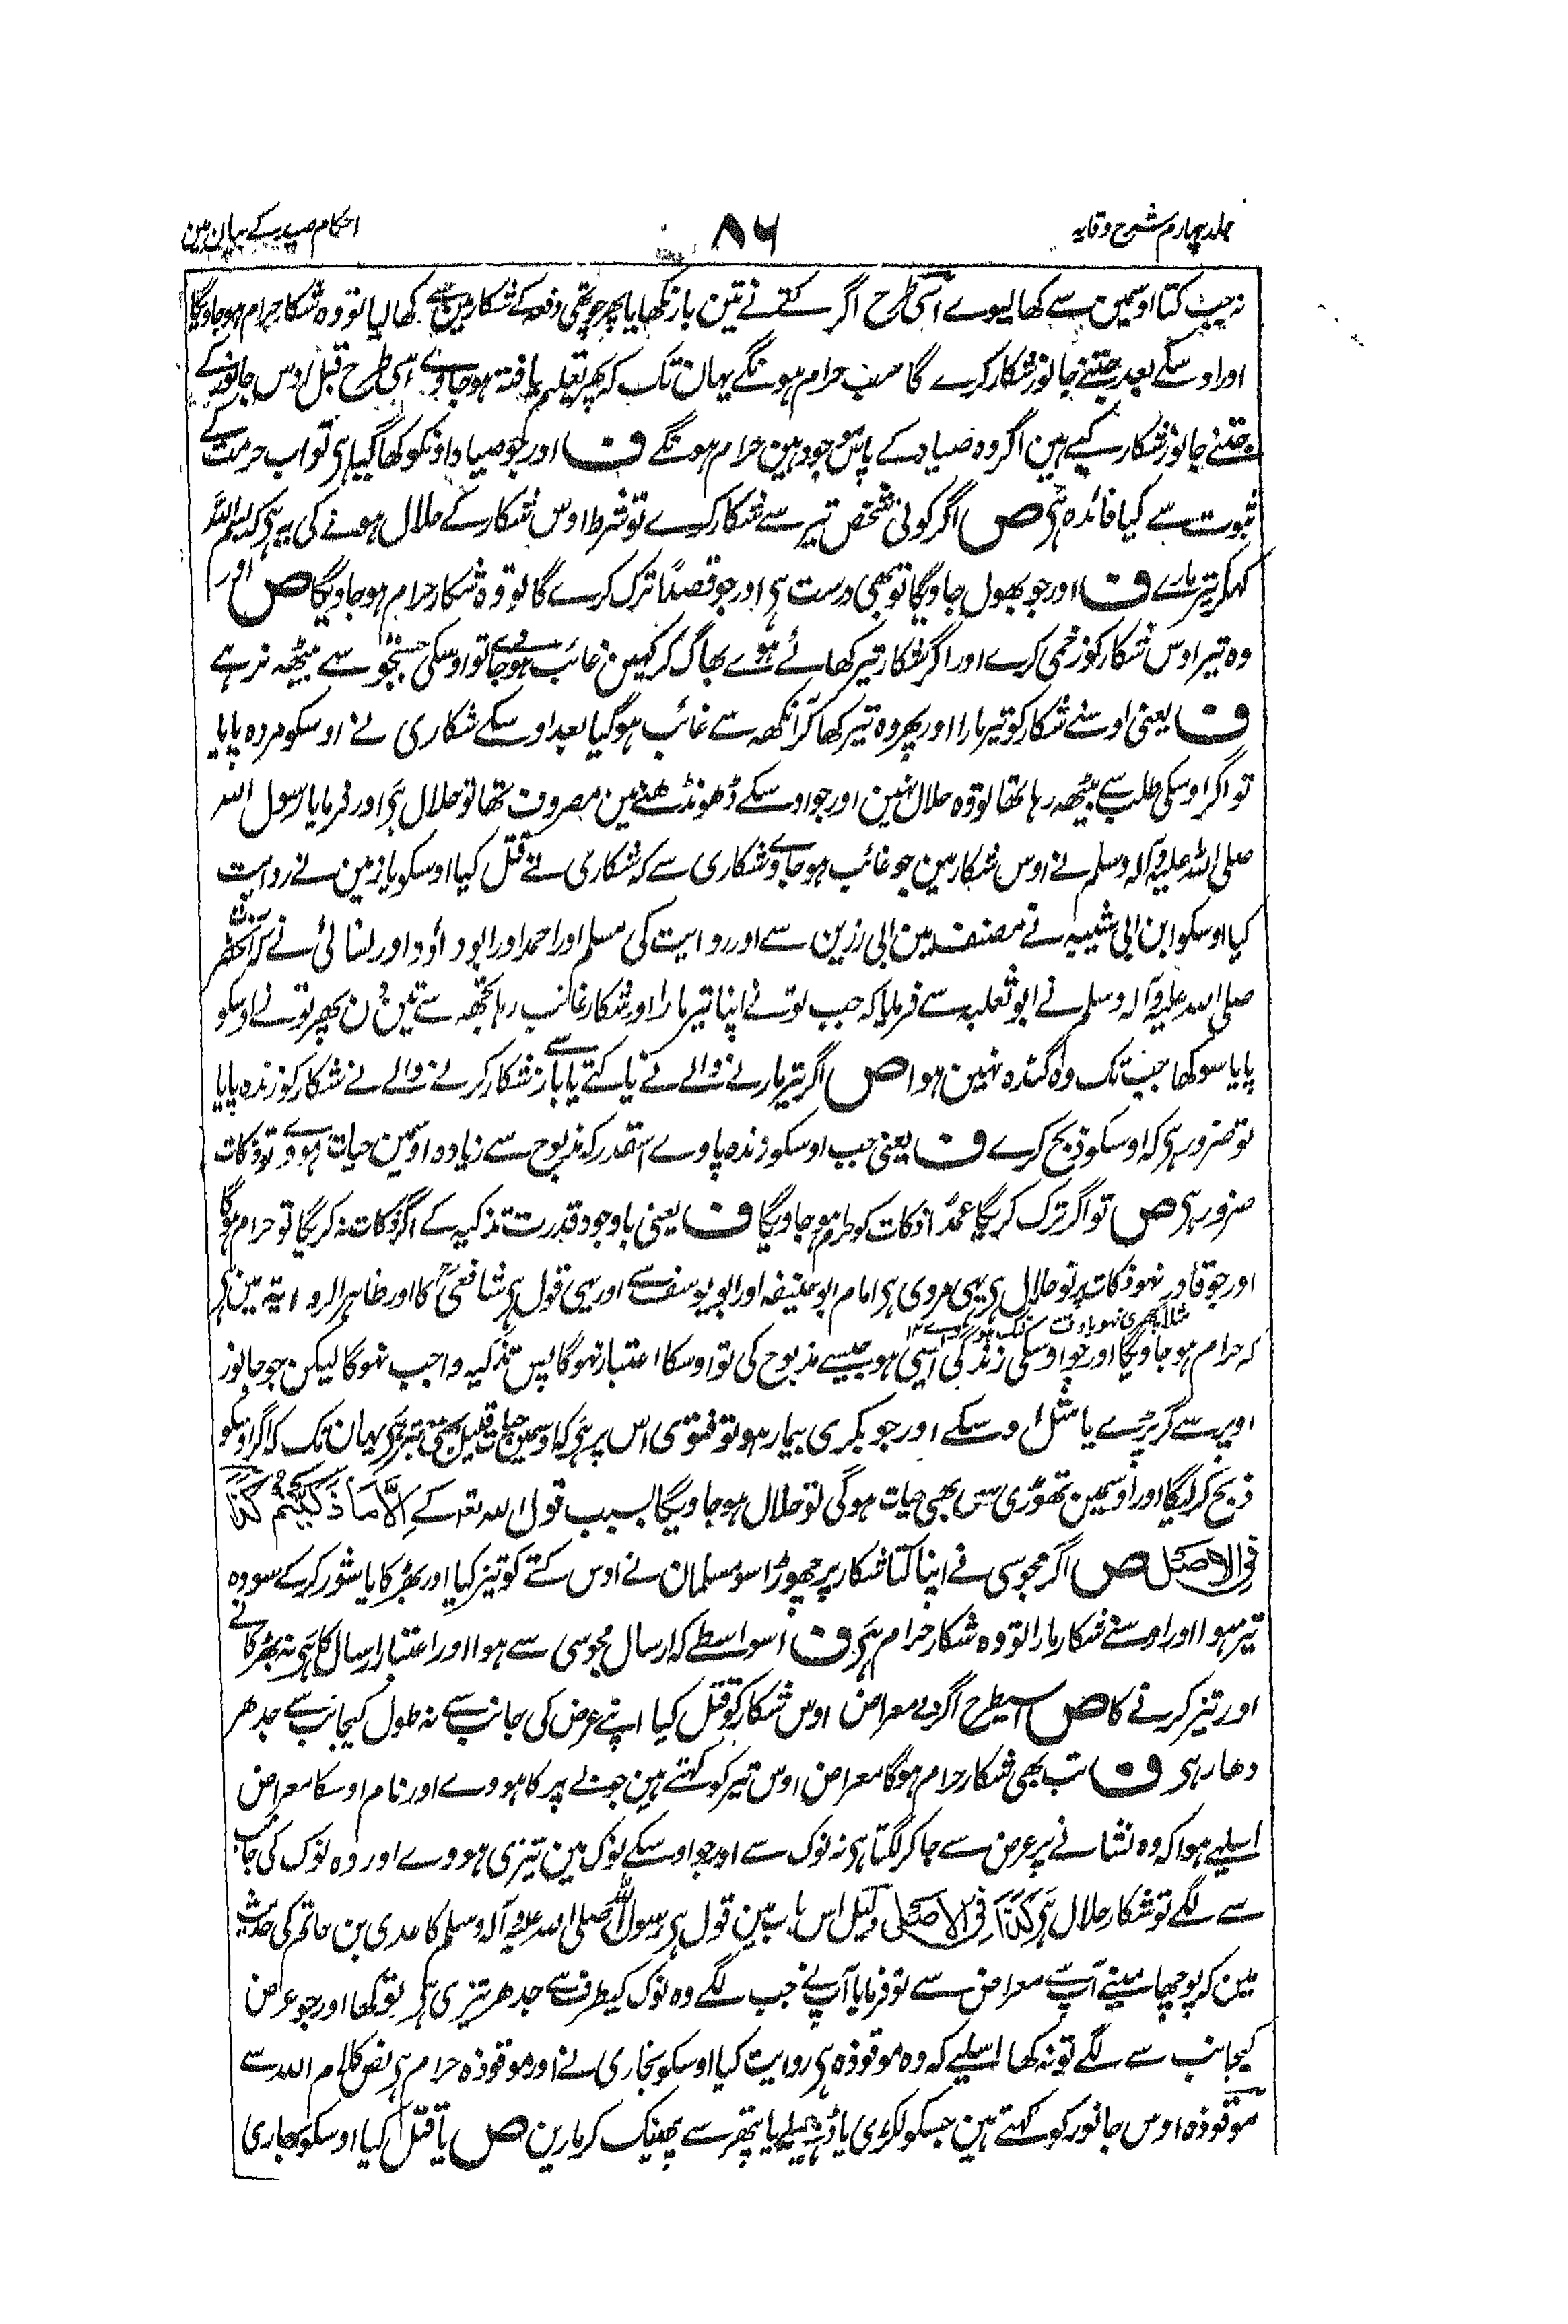 جلد چہارم شرح وقایہ
۸۶
احکام صید کے بیان مین
نہ جب کتا اوسمین سے کھا لیوے اسی طرح اگر کتے نے تین بار نکھایا پھر چوتھی دفعہ کے شکار مین سے کھا لیا تو وہ شکار حرام ہو جاویگا
اور اوسکے بعد جتنے جانور شکار کرے گا سب حرام ہونگے یہان تک کہ پھر تعلیم یافتہ ہو جاوے اسی طرح قبل اوس جانور کے
جتنے جانور شکار کیے ہین اگر وہ صیاد کے پاس موجود ہین حرام ہونگے ف اور جو صیاد اونکو کھا گیا ہی تو اب حرمت کے
ثبوت سے کیا فائدہ ہی ص اگر کوئی شخص تیر سے شکار کرے تو شرط اوس شکار کے حلال ہونے کی یہ ہی کہ بسم اللہ
کہکر تیر مارے ف اور جو بھول جاویگا تو بھی درست ہی اور جو قصداً ترک کرے گا تو وہ شکار حرام ہو جاویگا ص اور
وہ تیر اوس شکار کو زخمی کرے اور اگر شکار تیر کھائے ہوے بھاگ کر کہین غائب ہو جاوے تو اوسکی جستجو سے بیٹھہ نرہے
ف یعنی اوسنے شکار کو تیر مارا اور پھر وہ تیر کھا کر آنکھہ سے غائب ہو گیا بعد اوسکے شکاری نے اوسکو مردہ پایا
تو اگر اوسکی طلب سے بیٹھہ رہا تھا تو وہ حلال نہین اور جو اوسکے ڈھونڈھنے مین مصروف تھا تو حلال ہی اور فرمایا رسول اللہ
صلی اللہ علیہ وآلہ وسلم نے اوس شکار مین جو غائب ہو جاوے شکاری سے کہ شکاری نے قتل کیا اوسکو یا زمین نے روایت
کیا اوسکو ابن ابی شیبہ نے مصنف مین ابی رزین سے اور روایت کی مسلم اور احمد اور ابو داؤد اور نسائی نے کہ آنحضرت
صلی اللہ علیہ وآلہ وسلم نے ابو ثعلبہ سے فرمایا کہ جب تو نے اپنا تیر مارا اور شکار غائب رہا تجھہ سے تین دن پھر تو نے اوسکو
پایا سو کھا جب تک وہ گندہ نہین ہوا ص اگر تیر مارنے والے نے یا کتے یا باز سے شکار کرنے والے نے شکار کو زندہ پایا
تو ضرور ہی کہ اوسکو ذبح کرے ف یعنی جب اوسکو زندہ پاوے اسقدر کہ مذبوح سے زیادہ اوسمین حیات ہووے تو ذکات
ضرور ہی ص تو اگر ترک کریگا عمداً ذکات کو حرام ہو جاویگا ف یعنی باوجود قدرت تذکیہ کے اگر ذکات نہ کریگا تو حرام ہوگا
اور جو قادر نہو ذکات پر تو حلال ہی یہی مروی ہی امام ابو حنیفہ اور ابو یوسف سے اور یہی قول ہی شافعی کا اور ظاہر الروایۃ مین ہی
مثلاً چھری نہو یا وقت تنگ ہو ۱۲
کہ حرام ہو جاویگا اور جو اوسکی زندگی ایسی ہو جیسے مذبوح کی تو اوسکا اعتبار نہوگا پس تذکیہ واجب نہوگا لیکن جو جانور
اوپر سے گر پڑے یا مثل اوسکے اور جو بکری بیمار ہو تو فتویٰ اس پر ہی کہ اوسمین حیات قلیل بھی معتبر ہی یہان تک کہ اگر اوسکو
ذبح کر لیگا اور اوسمین تھوڑی سی بھی حیات ہوگی تو حلال ہو جاویگا بسبب قول اللہ تعالے کے اِلَّا مَا ذَكَّيْتُمْ كَذَا
فِی الْاَصْل ص اگر مجوسی نے اپنا کتا شکار پر چھوڑا سو مسلمان نے اوس کتے کو تیز کیا اور بھڑکایا شور کر کے سو وہ
تیز ہوا اور اوسنے شکار مارا تو وہ شکار حرام ہی ف اسواسطے کہ ارسال مجوسی سے ہوا اور اعتبار ارسال کا ہی نہ بھڑکانے
اور تیز کرنے کا ص اسیطرح اگر بے معراض اوس شکار کو قتل کیا اپنے عرض کی جانب سے نہ طول کیجانب سے جدھر
دھار ہی ف تب بھی شکار حرام ہوگا معراض اوس تیر کو کہتے ہین جو بے پر کا ہووے اور نام اوسکا معراض
اسلیے ہوا کہ وہ نشانے پر عرض سے جا کر لگتا ہی نہ نوک سے اور جو اوسکے نوک مین تیزی ہووے اور وہ نوک کی جانب
سے لگے تو شکار حلال ہی كَذَا فِی الْاَصْل دلیل اس باب مین قول ہی رسول اللہ صلی اللہ علیہ وآلہ وسلم کا عدی بن حاتم کی حدیث
مین کہ پوچھا مینے آپ سے معراض سے تو فرمایا آپ نے جب لگے وہ نوک کیطرف سے جدھر تیزی ہی تو کھا اور جو عرض
کیجانب سے لگے تو نہ کھا اسلیے کہ وہ موقوذہ ہی روایت کیا اوسکو بخاری نے اور موقوذہ حرام ہی نص کلام اللہ سے
موقوذہ اوس جانور کو کہتے ہین جسکو لکڑی یا ڈھیلے یا پتھر سے پھینک کر مارین ص یا قتل کیا اوسکو بھاری